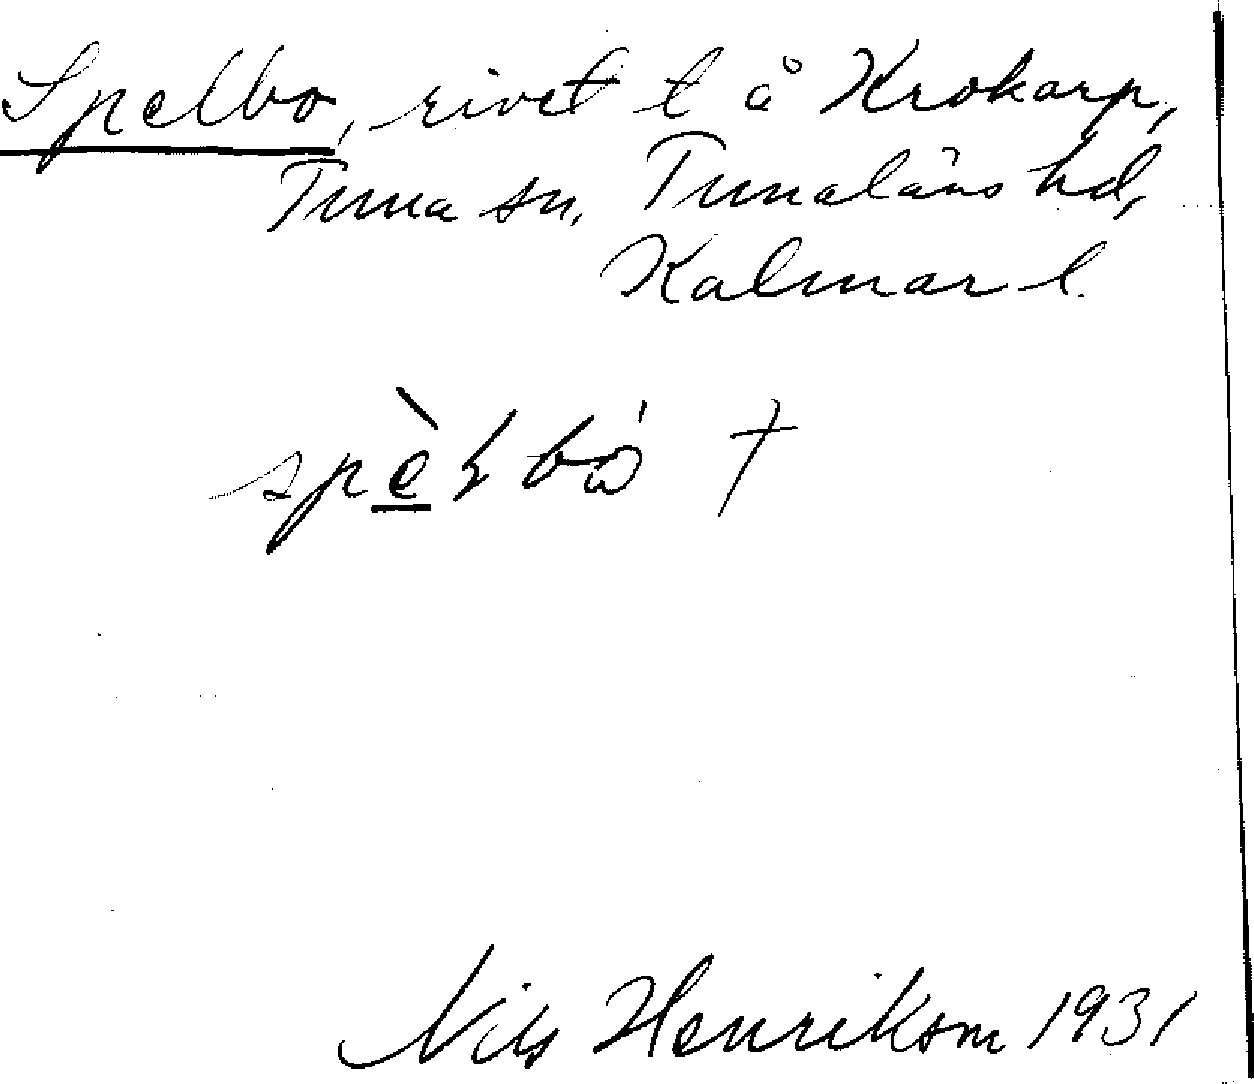 Spelbo, rivet t å Krokarp,
Tuna sn, Tunaläns hd,
Kalmar l.
†
Nils Henrikson 1931